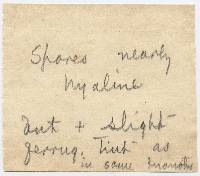 Spores nearly
hyaline
but + slight
ferrug. Tint as
in some